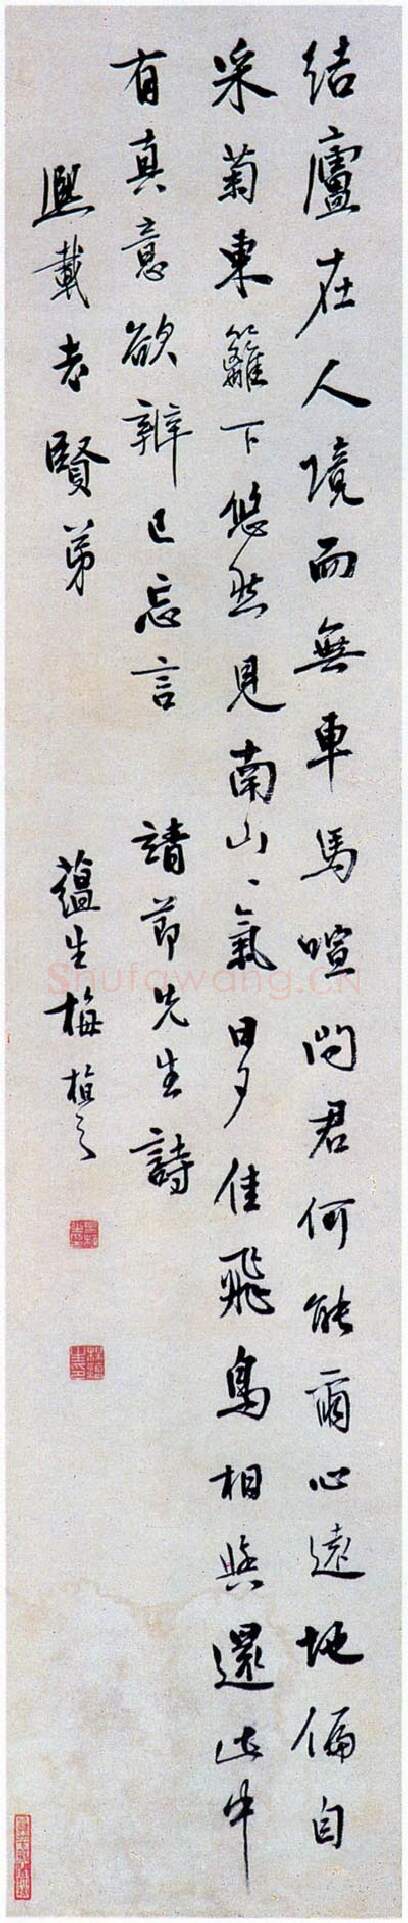 结廬在人境而無車馬喧問君何能爾心遠地偏自
采菊東籬下悠然見南山山氣日夕佳飛鳥相與還此中
有真意欲辨已忘言 靖節先生詩
熙載老賢弟 蘊生梅植之
Shufawang.CN